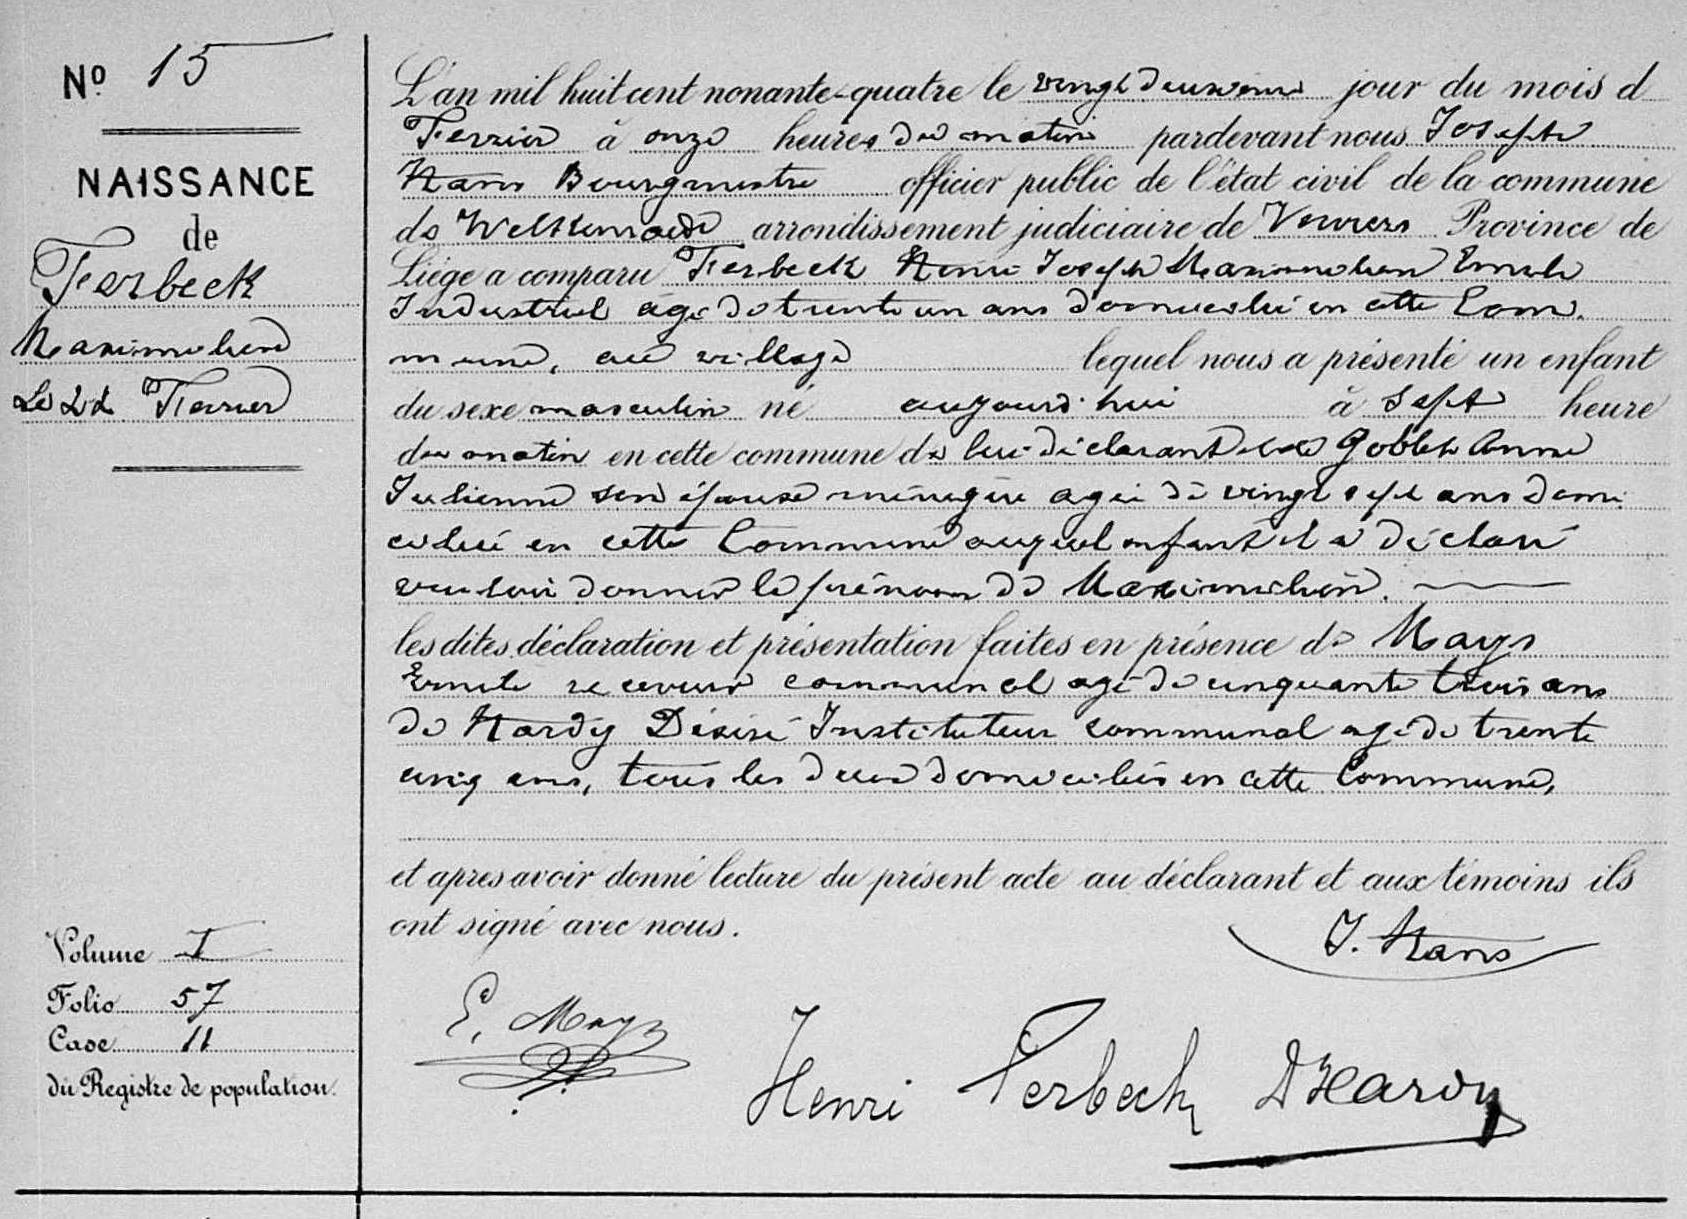 No 15
NAISSANCE
de
Ferbeck
Maximilien
Le 22 Fevrier
L'an mil huit cent nonante-quatre le vingt deuxieme jour du mois d
Fevrier à onze heures du matin pardevant nous Joseph
Hans Bourgmestre officier public de l'état civil de la commune
de Welkenraedt arrondissement judiciaire de Verviers Province de
Liége a comparu Ferbeck Henri Joseph Maximilien Emile
Industriel agé de trente un ans domicilié en cette Com
mune, au village lequel nous a présenté un enfant
du sexe masculin né aujourd'hui à sept heure
du matin en cette commune de lui déclarant et de Goblet Anne
Julienne son épouse ménagère agée de vingt sept ans domi
ciliée en cette Commune auquel enfant il a déclaré
vouloir donner le prénom de Maximilien.
les dites déclaration et présentation faites en présence de Mays
Emile receveur communal agé de cinquante trois ans
de Hardy Désiré Instituteur communal agé de trente
cinq ans, tous les deux domiciliés en cette Commune,
et apres avoir donné lecture du présent acte au déclarant et aux témoins ils
ont signé avec nous.
J. Hans
E. Mays
Henri Ferbeck
D Hardy
Volume I
Folio 57
Case 11
du Registre de population.